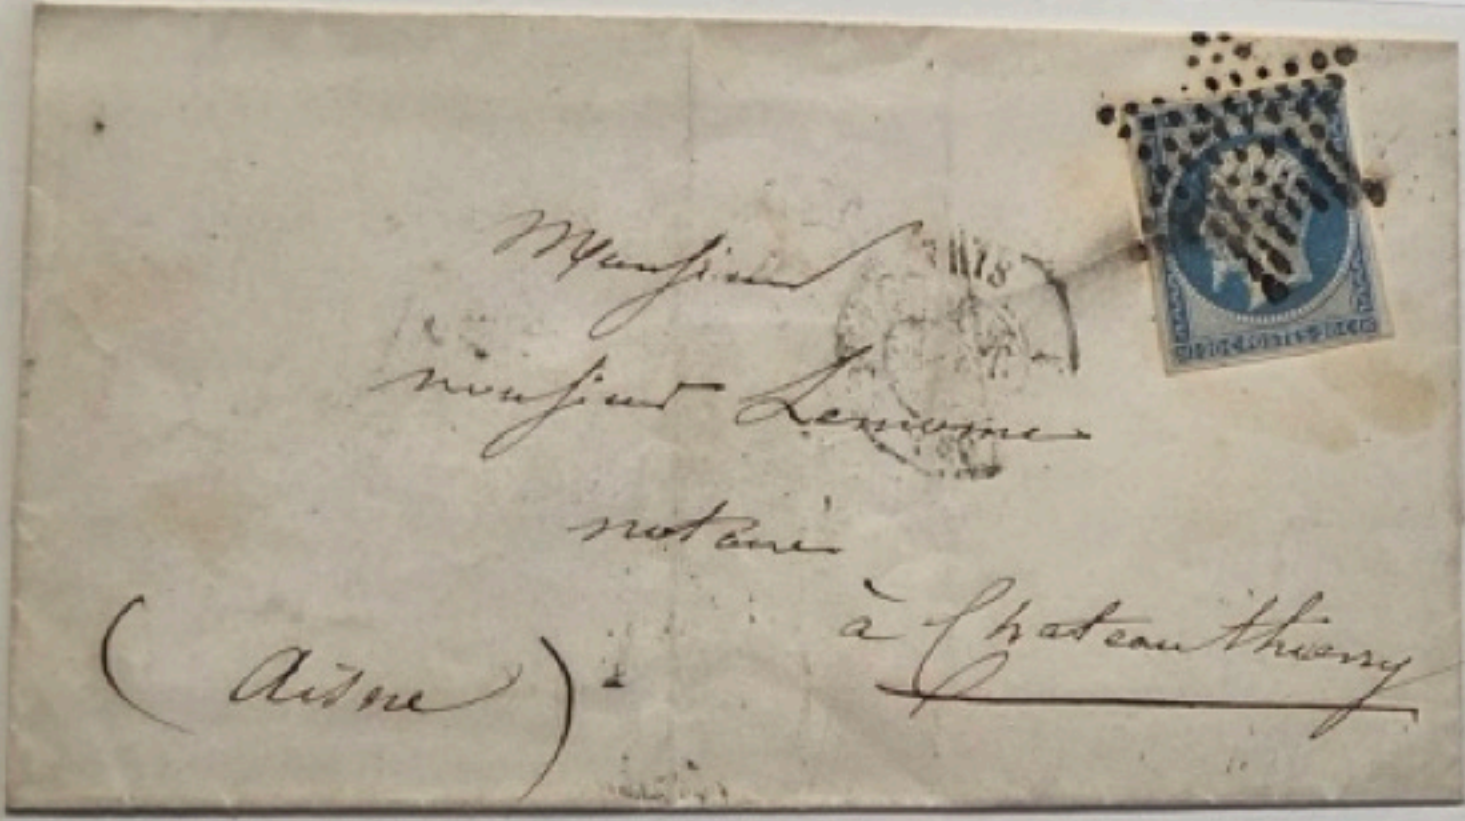 Monsieur
monsieur Lemoine
notaire
à Chateau thierry
(Aisne)